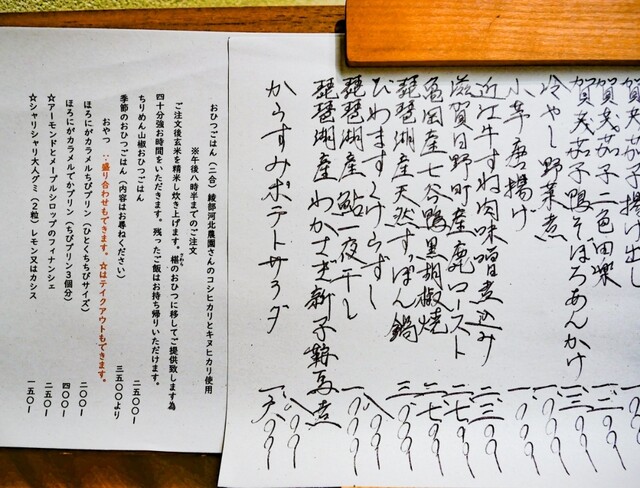 賀茂茄子揚げ出し
賀茂茄子二色田楽
賀茂茄子鴨そぼろあんかけ
冷やし野菜煮
小芋唐揚げ
近江牛すね肉味噌煮込み
滋賀日野町産鹿ロースト
亀岡産七谷鴨黒胡椒焼
琵琶湖産天然すっぽん鍋
びわますくけらずし
琵琶湖産鮎一夜干し
琵琶湖産わかさぎ新子鞍馬煮
からすみポテトサラダ
おひつごはん（二合）綾部河北農園さんのコシヒカリとキヌヒカリ使用
※午後八時半までのご注文
ご注文後玄米を精米し炊き上げます。椹のおひつに移してご提供致します為
四十分強お時間をいただきます。残ったご飯はお持ち帰りいただけます。
ちりめん山椒おひつごはん 二五〇〇ー
季節のおひつごはん（内容はお尋ねください） 三五〇〇より
おやつ ∵盛り合わせもできます。☆はテイクアウトもできます。
ほろにがカラメルちびプリン（ひとくちちびサイズ） 二〇〇ー
ほろにがカラメルでかプリン（ちびプリン３個分） 四〇〇ー
☆アーモンドとメープルシロップのフィナンシェ 二五〇ー
☆シャリシャリ大人グミ（２粒）レモン又はカシス 一五〇ー